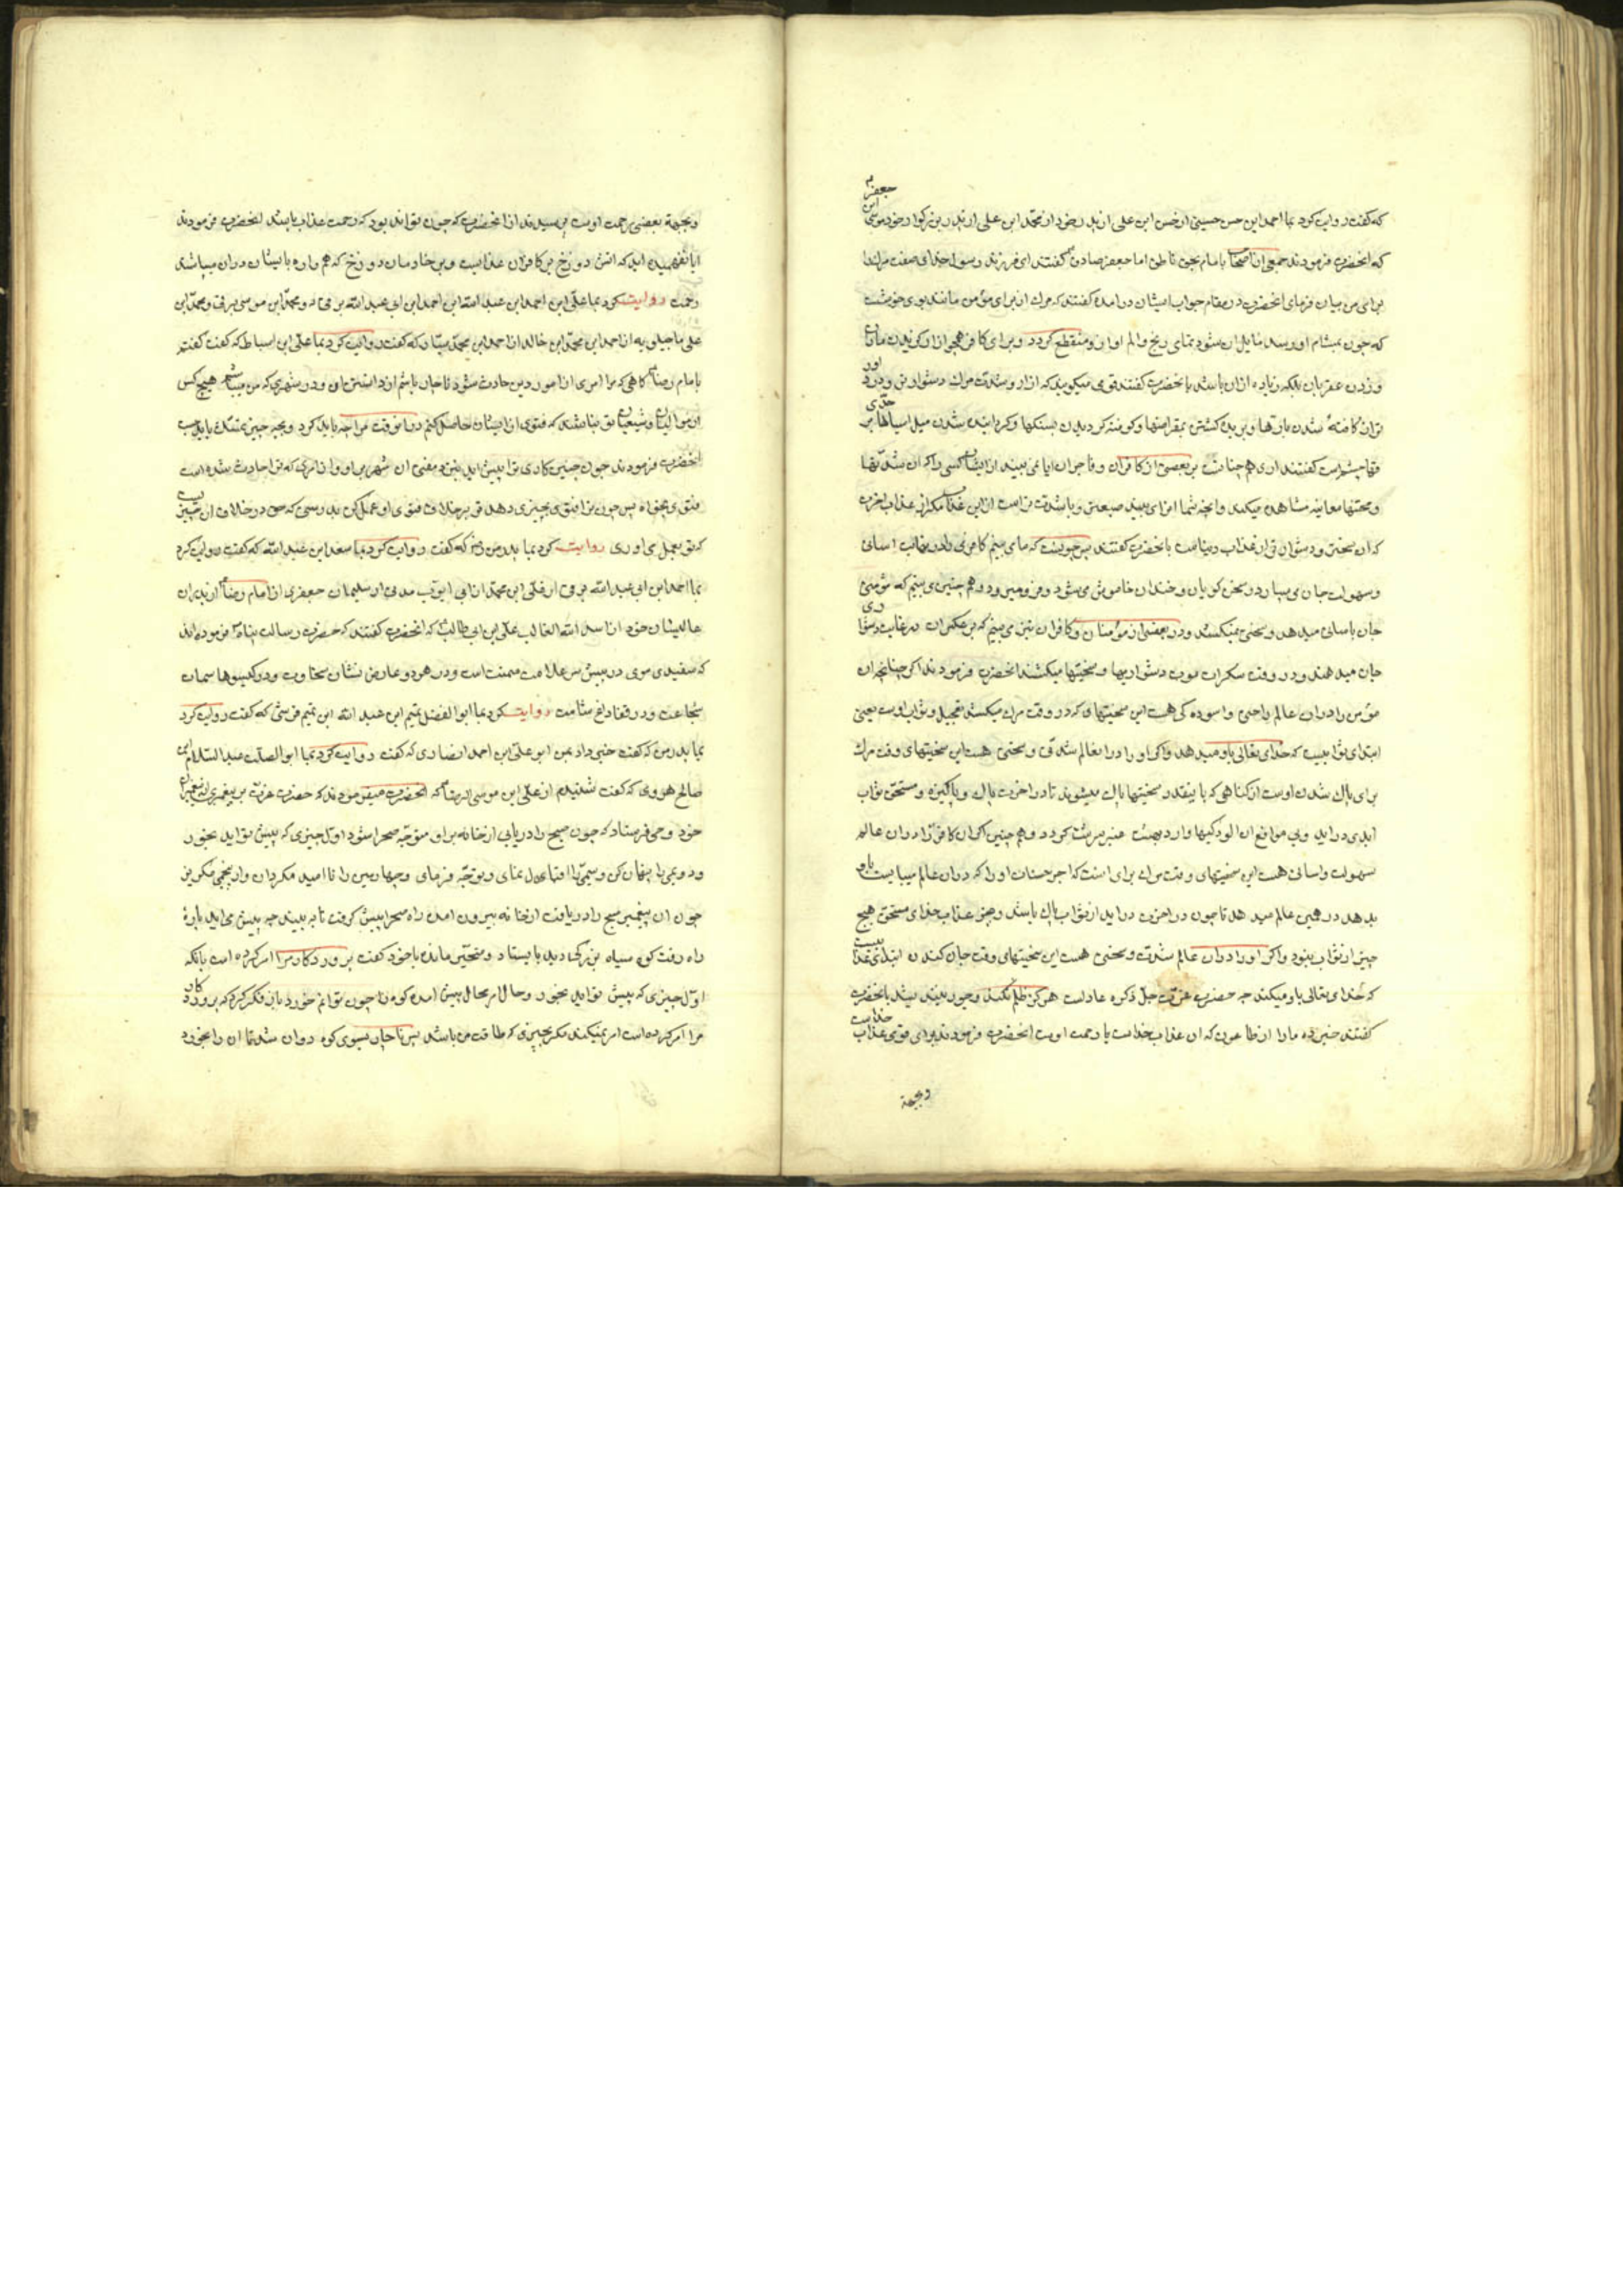 جعفر
که گفت روایت کرد بما احمد ابن حسن حسینی از حسن ابن علی از پدر خود از محمد ابن علی از پدر بزرگوار خود موسی ابن
که انحضرت فرمودند جمعی از اصحاب با امام بحق ناطق امام جعفر صادق گفتند ای فرزند رسول خدای صفت مرک را
برای من بیان فرمای انحضرت در مقام جواب ایشان درامده گفتند که مرک از برای مؤمن مانند بوی خوشست
که چون بمشام او رسد مایل ان شود تمامی رنج و الم او از و منقطع گردد و برای کافر همچو از او گزیدن ماران
و زدن عقربان بلکه زیاده ازان باشد با نحضرت گفتند قومی میگویند که ازار و شدت مرک دشوارتر و درد اور
تر از شدن بارها و بریده کشتن بمقراضها و کوفته کردیدن بسنکها و کردانیده شدن میل اسیاها بر
حدقها چشمهاست گفتند اری همچنانست بر بعضی از کافران و فاجران ایا نمی بینید از ایشان کسی را که ان شدتها
و محنتها معاینه مشاهده میکند و انچه شما انرا می بینید صعبتر و با شدت تر است ازین عذاب مکر از عذاب اخرت
که ان سختر و دشوارتر از عذاب دنیاست با نحضرت گفتند پس چونست که ما می بینم کافری را در نهایت اسانی
و سهولت جان می سپارد در سخن گویان و خندان خاموش می شود و فرو میرود و همچنین می بینم که مؤمنی
جان باسانی میدهد و سختی نمیکشد و در بعضی از مؤمنان و کافران نیز می بینم که بر عکس ان در غایت دشواری
جان میدهند و در وقت سکرات موت دشواریها و سختیها میکشند انحضرت فرمودند اگر چنانچه ان
مؤمن را دران عالم راحتی و اسوده کی هست این سختیهای که در وقت مرک میکشد تعجیل و ثواب اوست یعنی
ابتدای ثوابیست که خدای تعالی باو میدهد و اگر او را در ان عالم شدتی و سختی هست این سختیهای وقت مرک
برای پاک شدن اوست از کناهی که با ینقدر سختیها پاک میشوند تا در اخرت پاک و پاکیزه و مستحق ثواب
ابدی دراید و بی موانع ان الودکیها وارد بهشت عنبر سرشت کردد و همچنین اگر ان کافر را دران عالم
سهولت و اسانی هست این سختیهای وقت مرک برای انست که اجر حسنات او را که دران عالم میبایست باو
بدهد در همین عالم میدهد تا چون در اخرت دراید از ثواب پاک باشد و بجز عذاب خدای مستحق هیچ
چیز از ثواب نبود و اگر او را دران عالم شدت و سختی هست این سختیهای وقت جان کندن ابتدای عذابیست
که خدای تعالی باو میکند چه حضرت عزت جل ذکره عادلست هرگز ظلم نکند و جور نپسندد با نحضرت
گفتند خبر ده ما را از طاعون که ان عذاب خداست یا رحمت اوست انحضرت فرمودند برای قومی عذاب خداست
وبجهة
وبجهة بعضی رحمت اوست پرسیدند از انحضرت که چون تواند بود که رحمت عذاب باشد انحضرت فرمودند
ایا نفهمیده اید که اتش دوزخ بر کافران عذابست و بر خادمان دوزخ که همواره با ایشان دران میباشند
رحمت روایت کرد بما علی ابن احمد ابن عبد الله ابن احمد ابن ابی عبد الله برقی و محمد ابن موسی برقی و محمد ابن
علی ماجیلویه از احمد ابن محمد ابن خالد از احمد ابن محمد سیار که گفت روایت کرد بما علی ابن اسباط که گفت گفتم
با امام رضا کاهی که مرا امری از امور دین حادث شود ناچار باشم از دانستن ان و در شهری که من میباشم هیچ کس
از موالیان و شیعیان تو نباشند که فتوی از ایشان حاصل کنم درانوقت مرا چه باید کرد و بچه چیز تمسک باید جست
انحضرت فرمودند چون چنین کاری ترا پیش اید بنزد مفتی ان شهر برو او از امری که ترا حادث شده است
فتوی بخواه پس چون ترا فتوی بچیزی دهد تو بر خلاف فتوی او عمل کن بدرستی که حق در خلاف ان چیزیست
که تو بعمل می اوری روایت کرد بما پدر من که گفت روایت کرد بما سعد ابن عبد الله که گفت روایت کرد
بما احمد ابن ابی عبد الله برقی از علی ابن محمد از ابی ایوب مدنی از سلیمان جعفری از امام رضا از پدران
عالیشان خود از اسد الله الغالب علی ابن ابی طالب که انحضرت گفتند که حضرت رسالت پناه فرموده اند
که سفیدی موی در پیش سر علامت میمنت است و در هر دو عارض نشان سخاوت و در کیسوها سمات
شجاعت و در قفا داغ شامت روایت کرد بما ابو الفضل تمیم ابن عبد الله ابن تمیم قرشی که گفت روایت کرد
بما پدر من که گفت خبر داد بمن ابو علی ابن احمد انصاری که گفت روایت کرد بما ابو الصلت عبد السلام ابن
صالح هروی که گفت شنیدم از علی ابن موسی الرضا که انحضرت میفرمودند که حضرت عزت بر پیغمبری از پیغمبران
خود وحی فرستاد که چون صبح را دریابی از خانه براو متوجه صحرا شو و اول چیزی که پیش تو اید بخور
و دویمی را پنهان کن و سیمی را قبول نمای و بتوجه فرمای و چهارمین را نا امید مکردان و از پنجمی بگریز
چون ان پیغمبر صبح را دریافت از خانه بیرون امده راه صحرا پیش گرفت تا به بیند چه پیش می اید پاره
راه رفت کوه سیاه بزرگی دید بایستاد و متحیر مانده با خود گفت پروردکار مرا امر کرده است بانکه
اول چیزی که پیش تو اید بخور و حال اول بحال پیش امده کوه را چون توانم خورد باز فکر کرد که پروردکار
مرا امر کرده است امر نمیکند مکر بچیزی که طاقت من باشد پس ناچار بسوی کوه روان شد تا ان را بخورد